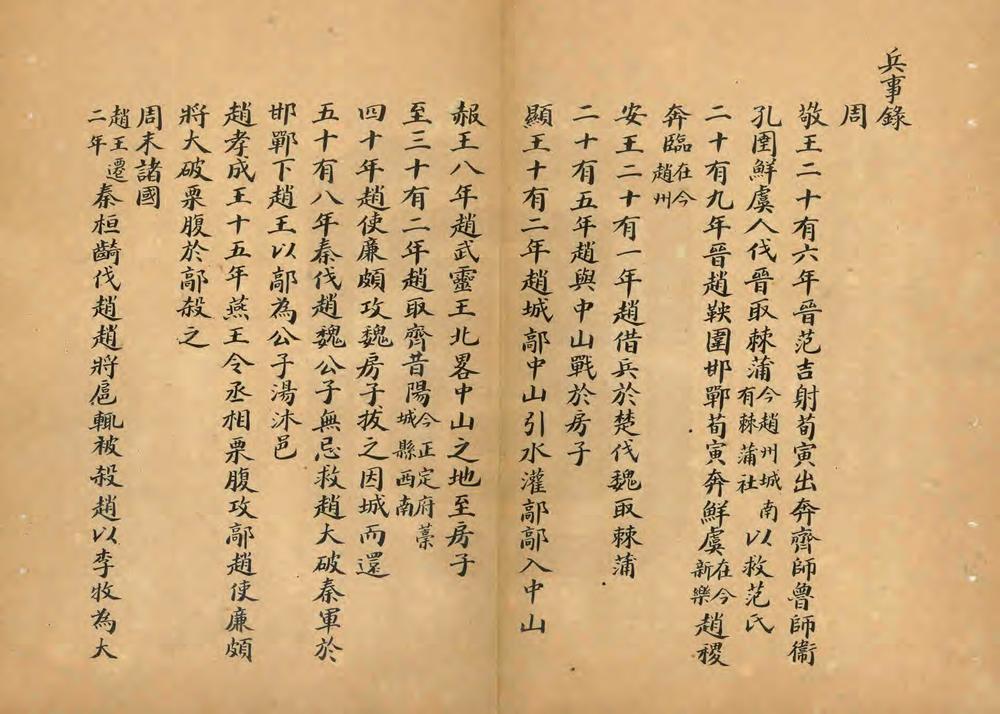 兵事錄
周
敬王二十有六年晉范吉射荀寅出奔齊師魯師衞
孔圉鮮虞人伐晉取棘蒲今趙州城南有棘蒲社以救范氏
二十有九年晉趙鞅圍邯鄲荀寅奔鮮虞在今新樂趙稷
奔臨在今趙州
安王二十有一年趙借兵於楚伐魏取棘蒲
二十有五年趙與中山戰於房子
顯王十有二年趙城鄗中山引水灌鄗鄗入中山
赧王八年趙武靈王北畧中山之地至房子
至三十有二年趙取齊昔陽今正定府藁城縣西南
四十年趙使廉頗攻魏房子拔之因城而還
五十有八年秦伐趙魏公子無忌救趙大破秦軍於
邯鄲下趙王以鄗為公子湯沐邑
趙孝成王十五年燕王令丞相栗腹攻鄗趙使廉頗
將大破栗腹於鄗殺之
周末諸國
趙王遷二年秦桓齮伐趙趙將扈輒被殺趙以李牧為大